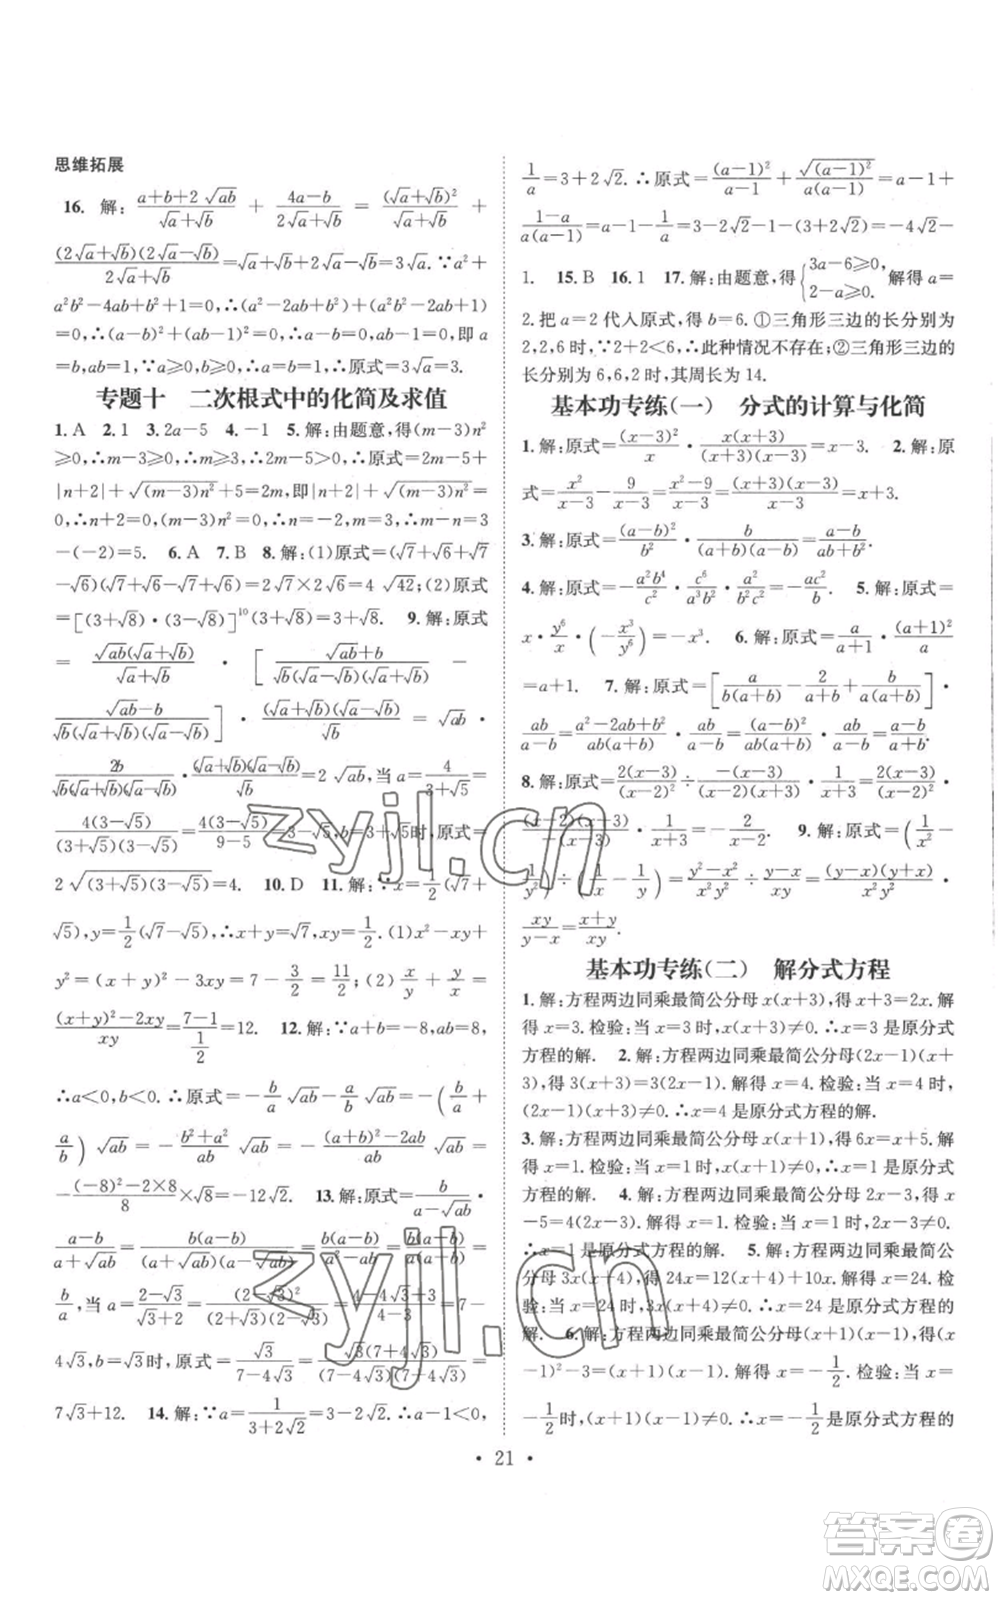 思维拓展
16. 解: (a+b+2√ab)/(√a+√b) + (4a-b)/(2√a+√b) = (√a+√b)²/(√a+√b) +
(2√a+√b)(2√a-√b)/(2√a+√b)=√a+√b+2√a-√b=3√a.∵a²+
a²b²-4ab+b²+1=0,∴(a²-2ab+b²)+(a²b²-2ab+1)
=0,∴(a-b)²+(ab-1)²=0,∴a-b=0,ab-1=0,即a
=b,ab=1.∵a≥0,b≥0,∴a=b=1.∴原式=3√a=3.
专题十 二次根式中的化简及求值
1. A 2. 1 3. 2a-5 4. -1 5. 解:由题意,得(m-3)n²
≥0,∴m-3≥0,∴m≥3,∴2m-5>0,∴原式=2m-5+
|n+2|+√(m-3)n²+5=2m,即|n+2|+√(m-3)n²=0,
∴n+2=0,(m-3)n²=0,∴n=-2,m=3,∴m-n=3
-(-2)=5. 6. A 7. B 8. 解:(1)原式=(√7+√6+√7
-√6)(√7+√6-√7+√6)=2√7×2√6=4√42;(2)原式
=[(3+√8)·(3-√8)]¹⁰(3+√8)=3+√8. 9. 解:原式
= √ab(√a+√b)/(√a+√b) · [(√ab+b)/(√b(√a-√b)(√a+√b)) -
(√ab-b)/(√b(√a+√b)(√a-√b))] · (√a+√b)(√a-√b)/√b = √ab ·
2b/(√b(√a-√b)(√a+√b))·(√a+√b)(√a-√b)/√b=2√ab,当a=4/(3+√5)=
4(3-√5)/((3+√5)(3-√5))=4(3-√5)/(9-5)=3-√5,b=3+√5时,原式=
2√(3+√5)(3-√5)=4. 10. D 11. 解:∵x=1/2(√7+
√5),y=1/2(√7-√5),∴x+y=√7,xy=1/2.(1)x²-xy+
y²=(x+y)²-3xy=7-3/2=11/2;(2)x/y+y/x=
((x+y)²-2xy)/xy=(7-1)/(1/2)=12. 12. 解:∵a+b=-8,ab=8,
∴a<0,b<0,∴原式=-b/a√ab-a/b√ab=-(b/a+
a/b)√ab=-(b²+a²)/ab √ab=-((a+b)²-2ab)/√ab=
-((-8)²-2×8)/√8=-12√2. 13. 解:原式=b/(a-√ab)·
(a-b)/(a+√ab)=b(a-b)/((a-√ab)(a+√ab))=b(a-b)/(a(a-b))=
b/a,当a=(2-√3)/(√3+2)=(2-√3)²/((2+√3)(2-√3))=(4-4√3+3)/(4-3)=7-
4√3,b=√3时,原式=√3/(7-4√3)=√3(7+4√3)/((7-4√3)(7+4√3))=
7√3+12. 14. 解:∵a=1/(3+2√2)=3-2√2,∴a-1<0,
1/a=3+2√2.∴原式=(a-1)²/(a-1)+√(a-1)²/(a(a-1))=a-1+
(1-a)/(a(a-1))=a-1-1/a=3-2√2-1-(3+2√2)=-4√2-
1. 15. B 16. 1 17. 解:由题意,得{3a-6≥0,2-a≥0.解得a=
2.把a=2代入原式,得b=6.①三角形三边的长分别为
2,2,6时,∵2+2<6,∴此种情况不存在;②三角形三边的
长分别为6,6,2时,其周长为14.
基本功专练(一) 分式的计算与化简
1. 解:原式=(x-3)²/x·x(x+3)/((x+3)(x-3))=x-3. 2. 解:原
式=x²/(x-3)-9/(x-3)=(x²-9)/(x-3)=(x+3)(x-3)/(x-3)=x+3.
3. 解:原式=(a-b)²/b²·b/((a+b)(a-b))=(a-b)/(ab+b²).
4. 解:原式=-a²b⁴/c²·c⁶/(a³b²)·a²/(b²c³)=-ac². 5. 解:原式=
x·y⁶/x·(-x³/y⁶)=-x³. 6. 解:原式=a/(a+1)·(a+1)²/a
=a+1. 7. 解:原式=[a/(b(a+b))-2/(a+b)+b/(a(a+b))]·
ab/(a-b)=(a²-2ab+b²)/(ab(a+b))·ab/(a-b)=(a-b)²/(ab(a+b))·ab/(a-b)=(a-b)/(a+b).
8. 解:原式=2(x-3)/(x-2)÷-(x-3)(x+3)/(x-2)=2(x-3)/(x-2)·
-(x-2)/((x-3)(x+3))=-2/(x+3). 9. 解:原式=(1/x²-
1/y²)÷(1/x-1/y)=(y²-x²)/(x²y²)÷(y-x)/xy=(y-x)(y+x)/(x²y²)·
xy/(y-x)=(x+y)/xy.
基本功专练(二) 解分式方程
1. 解:方程两边同乘最简公分母x(x+3),得x+3=2x.解
得x=3.检验:当x=3时,x(x+3)≠0.∴x=3是原分式
方程的解. 2. 解:方程两边同乘最简公分母(2x-1)(x+
3),得3(x+3)=3(2x-1).解得x=4.检验:当x=4时,
(2x-1)(x+3)≠0.∴x=4是原分式方程的解.
3. 解:方程两边同乘最简公分母(x+1)(x-1),得6x=x+5.解
得x=1.检验:当x=1时,(x+1)(x-1)=0.∴原分式
方程无解. 4. 解:方程两边同乘最简公分母2x-3,得x
-5=4(2x-3).解得x=1.检验:当x=1时,2x-3≠0.
∴x=1是原分式方程的解. 5. 解:方程两边同乘最简公
分母3x(x+4),得24x=2x+3x(x+4)
检验:当x=24时,3x(x+4)≠0.∴x=24是原分式方程的
解. 6. 解:方程两边同乘最简公分母(x+1)(x-1),得(x
-1)²-1=(x+1)(x-1).解得x=1/2.检验:当x=
1/2时,(x+1)(x-1)≠0.∴x=1/2是原分式方程的
• 21 •
zyjl.cn
zyjl.cn
答案圈
MXQE.COM